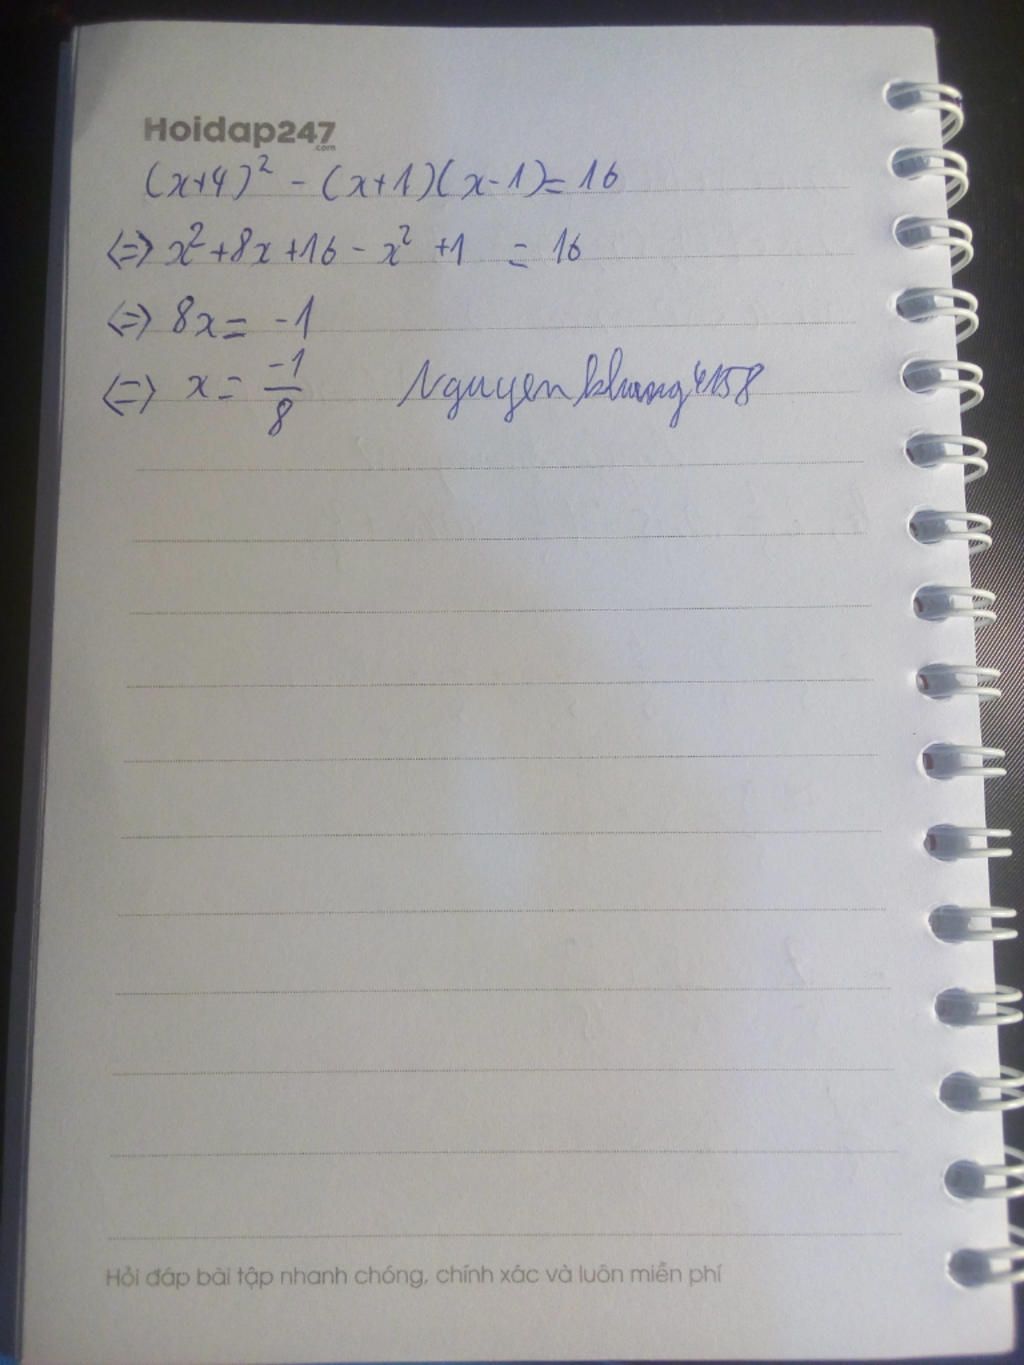 Hoidap247
.com
(x+4)² - (x+1)(x-1)= 16
<=> x²+8x+16 - x² +1 = 16
<=> 8x= -1
<=> x = -1/8 Nguyenkhang4158
Hỏi đáp bài tập nhanh chóng, chính xác và luôn miễn phí